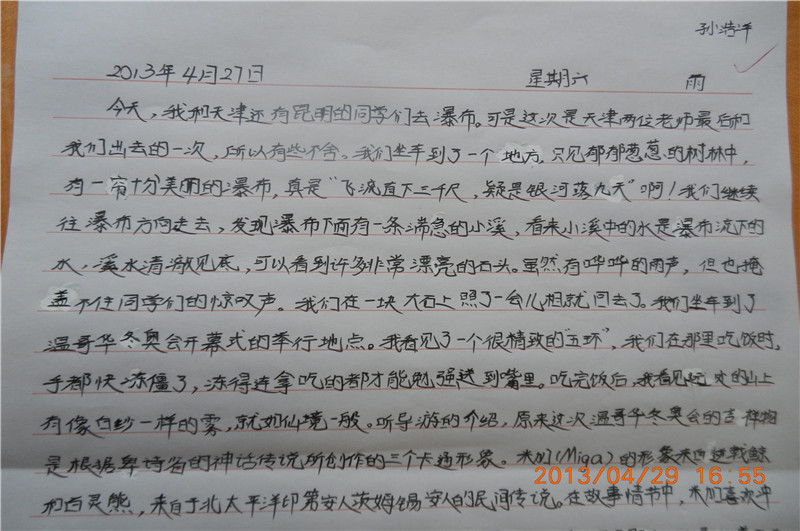 孙特洋
2013年4月27日 星期六 雨
今天,我和天津还有昆明的同学们去瀑布。可是这次是天津两位老师最后和
我们出去的一次,所以有些不舍。我们坐车到了一个地方,只见郁郁葱葱的树林中,
有一帘十分美丽的瀑布,真是“飞流直下三千尺,疑是银河落九天”啊!我们继续
往瀑布方向走去,发现瀑布下面有一条湍急的小溪,看来小溪中的水是瀑布流下的
水,溪水清澈见底,可以看到许多非常漂亮的石头。虽然有哗哗的雨声,但也掩
盖不住同学们的惊叹声。我们在一块大石上照了一会儿相就回去了。我们坐车到了
温哥华冬奥会开幕式的举行地点。我看见了一个很精致的“五环”,我们在那里吃饭时,
手都快冻僵了,冻得连拿吃的都才能勉强送到嘴里。吃完饭后,我看见远处的山上
有像白纱一样的雾,就如仙境一般。听导游的介绍,原来这次温哥华冬奥会的吉祥物
是根据卑诗省的神话传说所创作的三个卡通形象。米加(Miga)的形象来自逆戟鲸
和白灵熊,来自于北太平洋印第安人茨姆锡安人的民间传说。在故事情节中,米加喜欢冲
2013/04/29 16:55